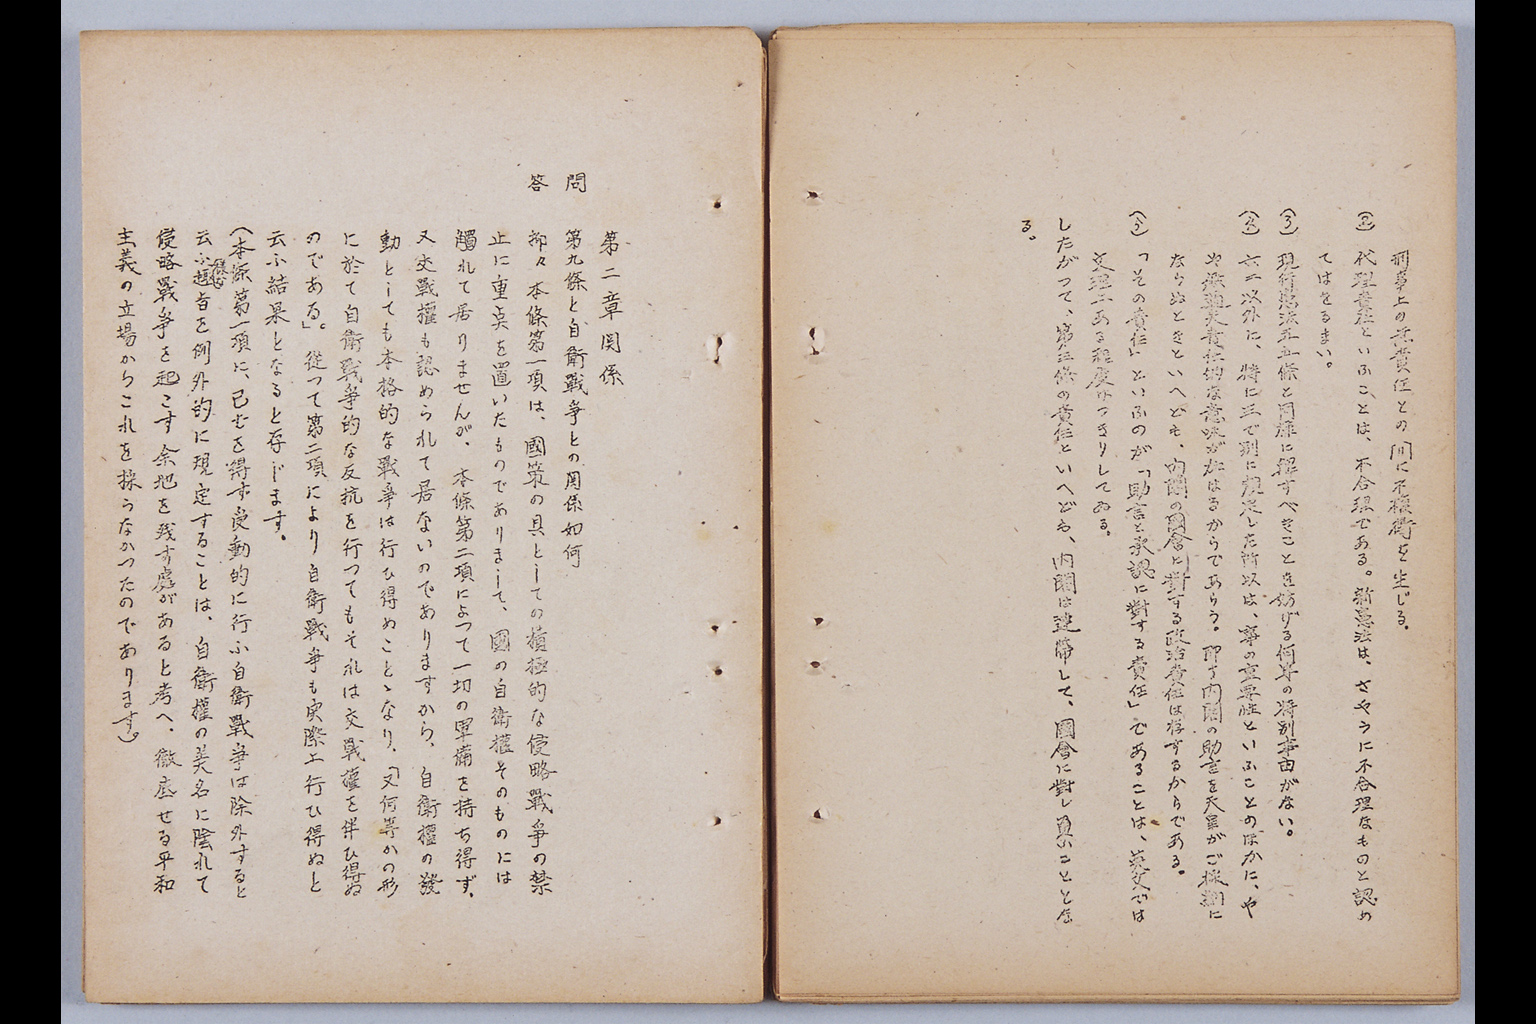 刑事上の無責任との間に不權衡を生じる。
(ニ) 代理責任といふことは、不合理である。新憲法は、さやうに不合理なものと認め
てはをるまい。
現行憲法五五條と同樣に解すべきことを妨げる何等の特別事由がない。
六二以外に、特に三で別に規定した所以は、事の重要性といふことのほかに、や
や無過失責任的な意味が加はるからであらう。即ち内閣の助言を天皇がご採納に
ならぬときといへども、内閣の國會に對する政治責任は存するからである。
「その責任」といふのが「助言と承認に對する責任」であることは、英文では
文理上ある程度はつきりしてゐる。
したがつて、第三條の責任といへども、内閣は連帶して、國會に對し負ふことと
る。
第二章関係
問 第九條と自衛戰爭との関係如何
答 抑々本條第一項は、國策の具としての積極的な侵略戰爭の禁
止に重点を置いたものでありまして、國の自衛權そのものには
觸れて居りませんが、本條第二項によつて一切の軍備を持ち得ず、
又交戰權も認められて居ないのでありますから、自衛權の發
動としても本格的な戰爭は行ひ得ぬことゝなり、「又何等かの形
に於て自衛戰爭的な反抗を行つてもそれは交戰權を伴ひ得ぬ
のである」。從つて第二項により自衛戰爭も実際上行ひ得ぬと
云ふ結果となると存じます。
(本條第一項に、已むを得ず受動的に行ふ自衛戰爭は除外すると
云ふ趣旨を例外的に規定することは、自衛權の美名に陰れて
侵略戰爭を起こす余地を残す處があると考へ、徹底せる平和
主義の立場からこれを採らなかつたのであります)。